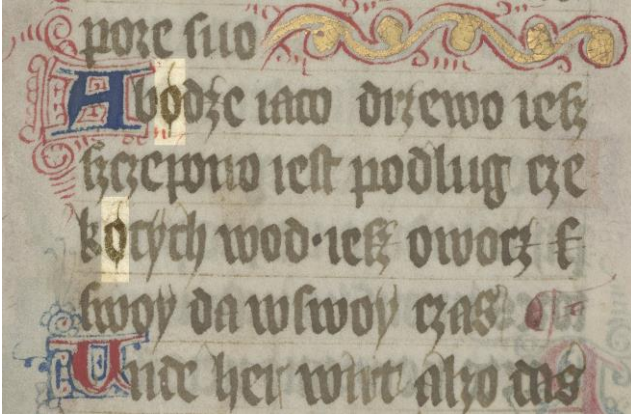 pore ſuo
Abødze iaco drzewo ieſz
ſzczepono ieſt podlug cze
køcych wod·ieſz owocz ſ
ſwoy da wſwoy czas
Unde her wirt alzo das